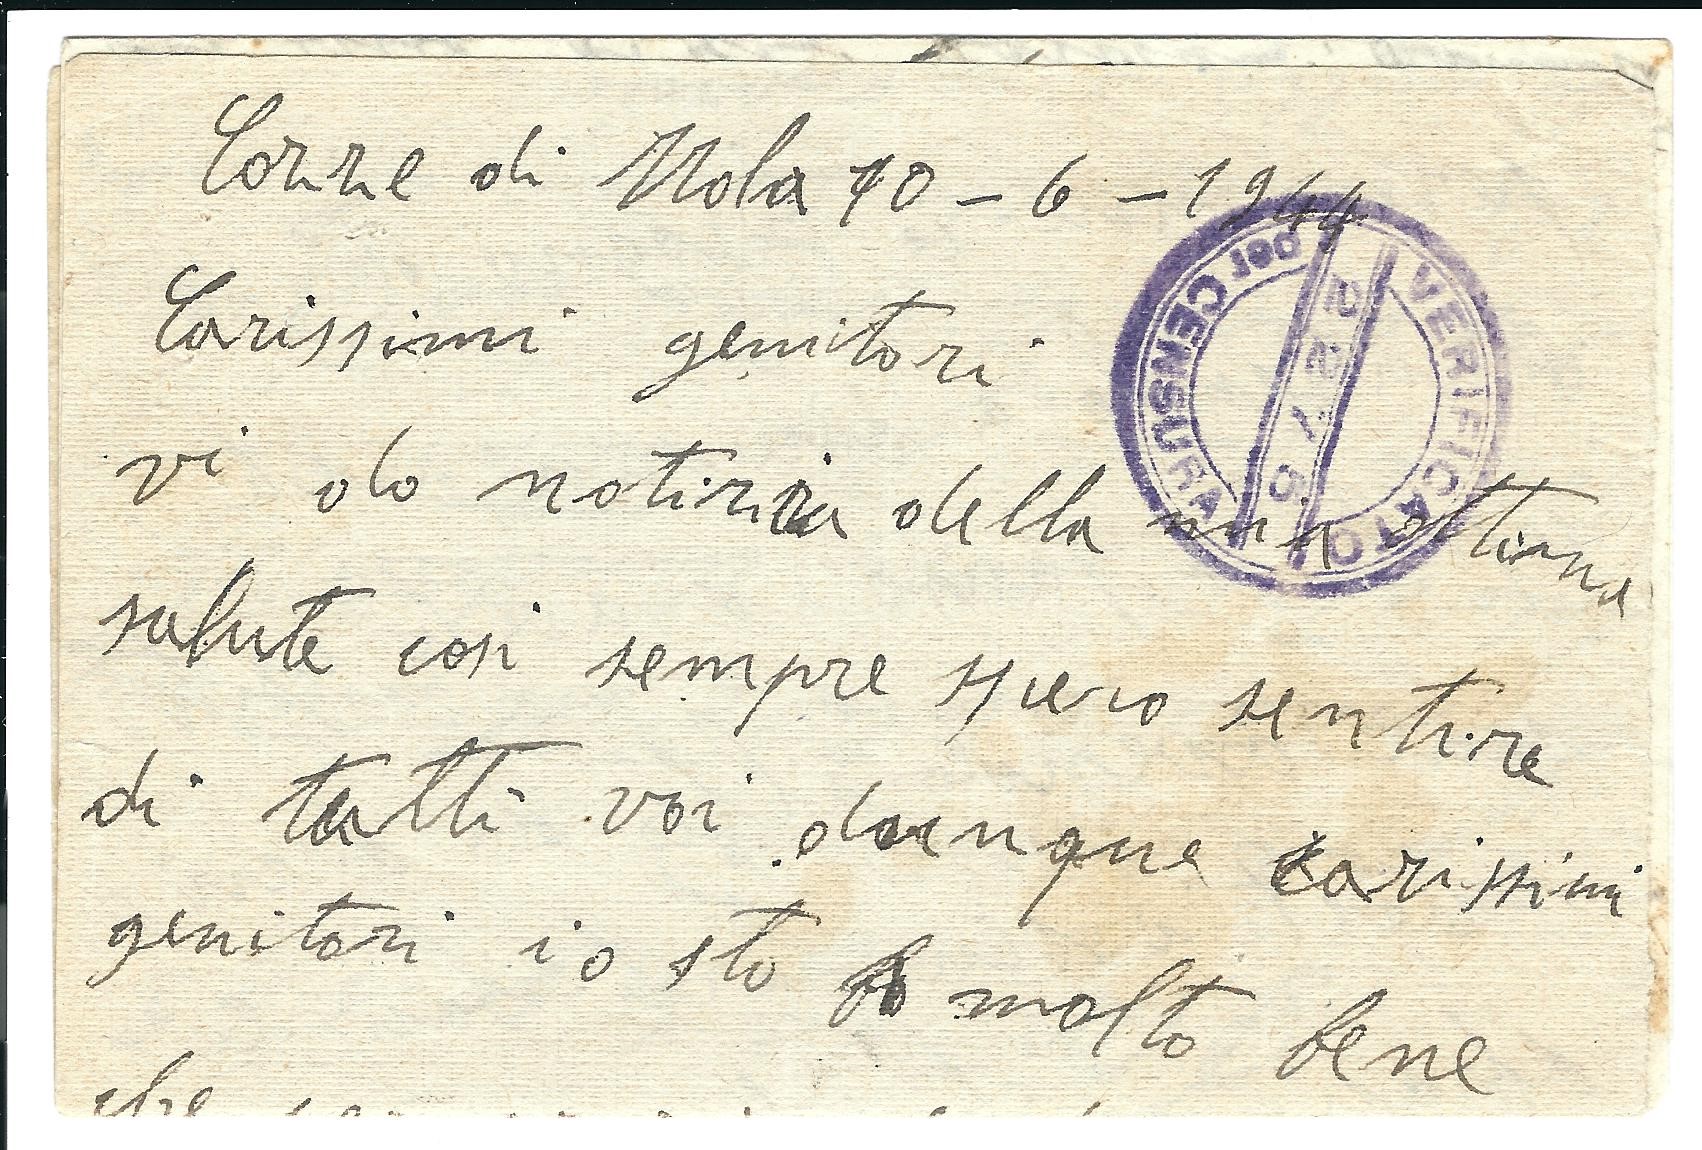 Torre di Mola 10 - 6 - 1944
VERIFICATO
per CENSURA
Carissimi genitori
vi do notizia della mia ottima
salute cosi sempre spero sentire
di tutti voi dunque carissimi
genitori io sto molto bene
che